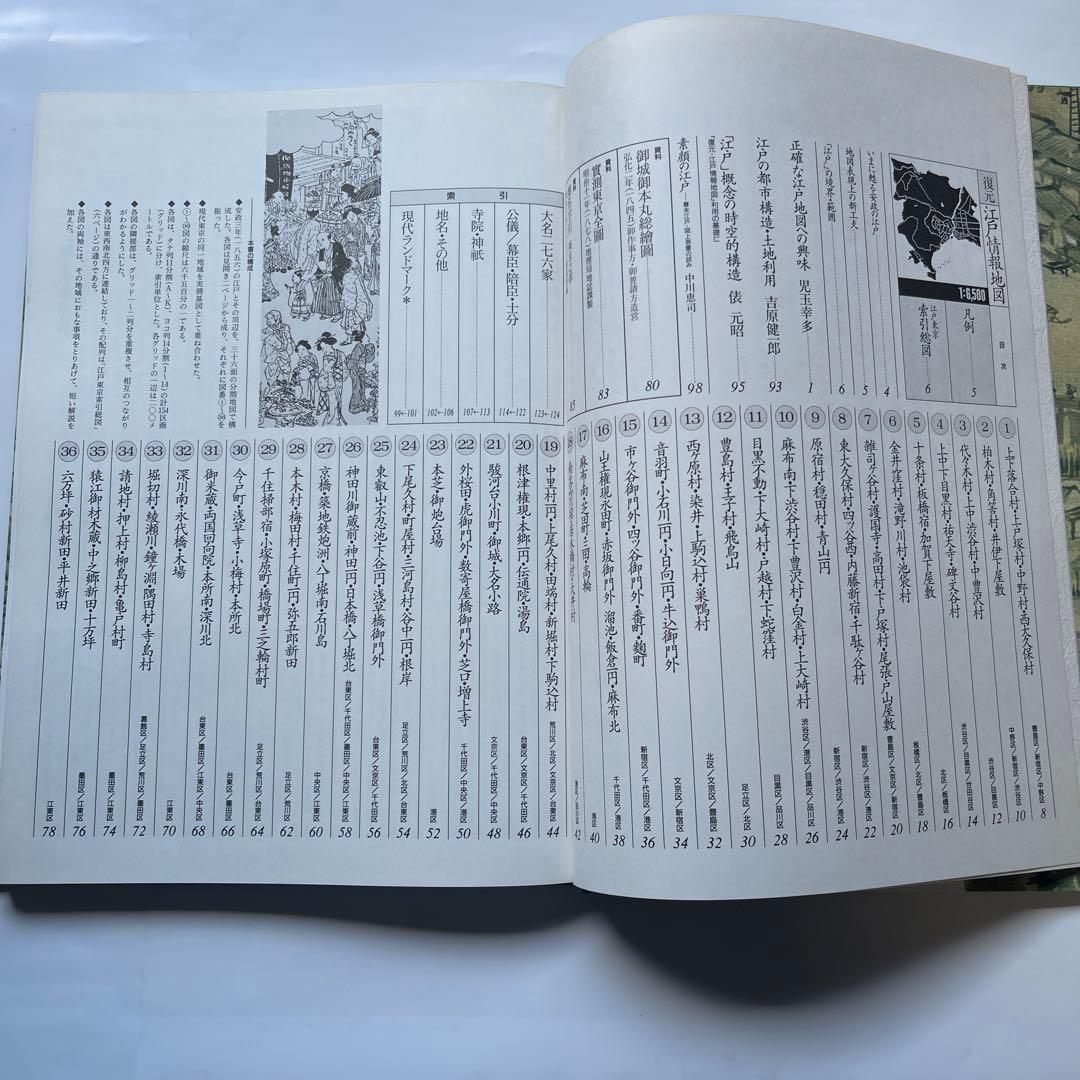 復元・江戸情報地図
1:6,500
目次
凡例 5
江戸東京
索引総図 6
いまに甦る安政の江戸 4
地図表現上の新工夫 5
「江戸」の境界・範囲 6
正確な江戸地図への興味 児玉幸多 1
江戸の都市構造・土地利用 吉原健一郎 93
「江戸」概念の時空的構造 俵元昭 95
「復元・江戸情報地図」利用の基礎に
素顔の江戸 中川恵司 98
資料
御城御本丸総繪圖 80
弘化二年(一八四五)御作事方・御普請方造営
資料
實測東京全圖 83
明治十一年(一八七八)地理局地誌課製
資料
85
① 上下落合村・上戸塚村・中野村・西大久保村 豊島区/新宿区/中野区 8
② 柏木村・角筈村・井伊下屋敷 中野区/新宿区/渋谷区 10
③ 代々木村・上中渋谷村・中豊沢村 渋谷区/目黒区 12
④ 上中下目黒村・祐天寺・碑文谷村 渋谷区/目黒区/世田谷区 14
⑤ 十条村・板橋宿・加賀下屋敷 北区/板橋区 16
⑥ 金井窪村・滝野川村・池袋村 板橋区/北区/豊島区 18
⑦ 雑司ヶ谷村・護国寺・高田村・下戸塚村・尾張戸山屋敷 豊島区/文京区/新宿区 20
⑧ 東大久保村・四ッ谷西・内藤新宿・千駄ヶ谷村 新宿区/渋谷区/港区 22
⑨ 原宿村・穏田村・青山一円 新宿区/渋谷区/港区 24
⑩ 麻布南・下渋谷村・下豊沢村・白金村・上大崎村 渋谷区/港区/目黒区 26
⑪ 目黒不動・下大崎村・戸越村・下蛇窪村 目黒区/品川区 28
⑫ 豊島村・王子村・飛鳥山 足立区/北区 30
⑬ 西ヶ原村・染井・上駒込村・巣鴨村 北区/文京区/豊島区 32
⑭ 音羽町・小石川一円・小日向一円・牛込御門外 文京区/新宿区 34
⑮ 市ヶ谷御門外・四ッ谷御門外・番町・麹町 新宿区/千代田区/港区 36
⑯ 山王権現・永田町・赤坂御門外・溜池・飯倉一円・麻布北 千代田区/港区 38
⑰ 麻布南・芝田町・三田・高輪 港区 40
⑱ 42
⑲ 中里村一円・上尾久村・田端村・新堀村・下駒込村 荒川区/北区/文京区/台東区 44
⑳ 根津権現・本郷一円・伝通院・湯島 台東区/文京区 46
㉑ 駿河台・小川町・御城・大名小路 文京区/千代田区 48
㉒ 外桜田・虎御門外・数寄屋橋御門外・芝口・増上寺 千代田区/中央区/港区 50
㉓ 本芝・御炮台場 港区 52
㉔ 下尾久村・町屋村・三河島村・谷中一円・根岸 足立区/荒川区/北区/台東区 54
㉕ 東叡山・不忍池・下谷一円・浅草橋御門外 台東区/文京区/千代田区 56
㉖ 神田川・御蔵前・神田一円・日本橋・八丁堀北 台東区/千代田区/墨田区/中央区/江東区 58
㉗ 京橋・築地鉄炮洲・八丁堀南・石川島 中央区/江東区 60
㉘ 本木村・梅田村・千住町一円・弥五郎新田 足立区/荒川区 62
㉙ 千住掃部宿・小塚原町・橋場町・三之輪村町 足立区/荒川区/台東区 64
㉚ 今戸町・浅草寺・小梅村・本所北 台東区/墨田区 66
㉛ 御米蔵・両国回向院・本所南・深川北 台東区/墨田区/江東区/中央区 68
㉜ 深川南・永代橋・木場 江東区 70
㉝ 堀切村・綾瀬川・鐘ヶ淵・隅田村・寺島村 葛飾区/足立区/荒川区/墨田区 72
㉞ 請地村・押上村・柳島村・亀戸村町 墨田区/江東区 74
㉟ 猿江御材木蔵・中之郷新田・十万坪 墨田区/江東区 76
㊱ 六万坪・砂村新田・平井新田 江東区 78
索引
大名二七六家 123←124
公儀/幕臣・陪臣・士分 114←122
寺院・神祇 107←113
地名・その他 102←106
現代ランドマーク* 99←101
本書の構成
◆安政三年(一八五六)の江戸とその周辺を、三十六面の分割地図で構
成した。各図は見開き二ページから成り、それぞれに図番①〜㊱を
振った。
◆現代東京の同一地域を実測基図として重ね合わせた。
◆①〜㊱図の縮尺は六千五百分の一である。
◆各図は、タテ列11分割(A〜K)、ヨコ列14分割(1〜14)の計154区画
(グリッド)に分け、索引単位とした。各グリッドの一辺は二〇〇メ
ートルである。
◆各図の隣接部は、グリッド一〜二列分を重複させ、相互のつながり
がわかるようにした。
◆各図は東西南北四方に連続しており、その配列は、「江戸東京索引総図」
(六ページ)の通りである。
◆各図の両袖には、その地域におもな事項をとりあげて、短い解説を
加えた。